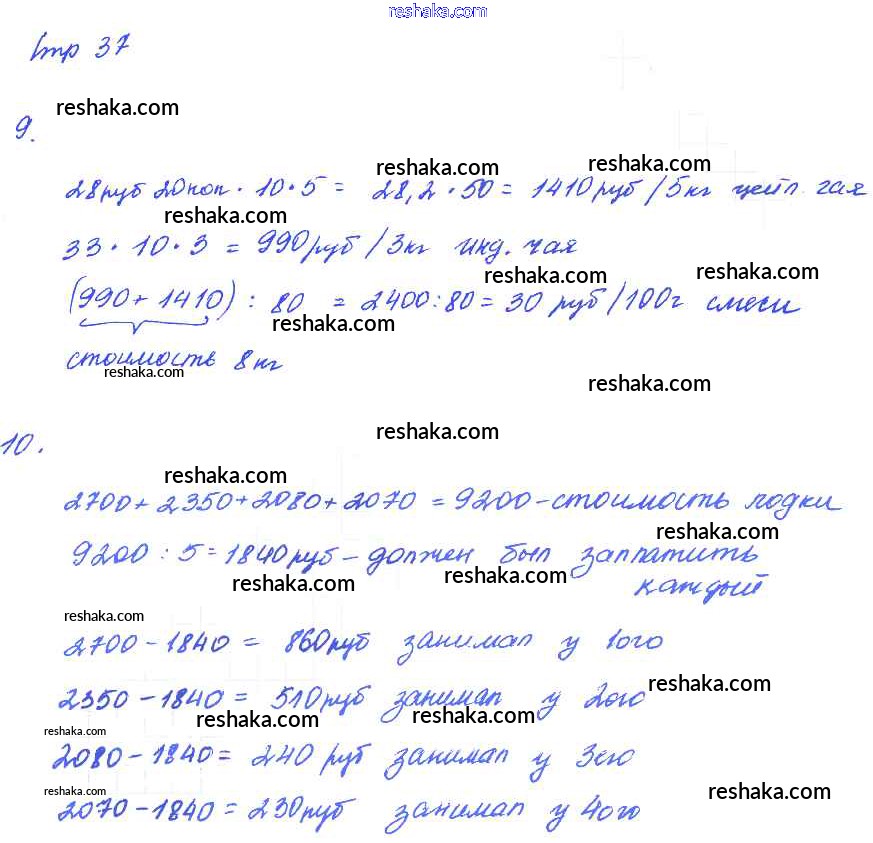 reshaka.com
стр 37
reshaka.com
9.
reshaka.com reshaka.com
28 руб 20 коп · 10 · 5 = 28,2 · 50 = 1410 руб / 5 кг цейл. чая
reshaka.com
33 · 10 · 3 = 990 руб / 3 кг инд. чая
reshaka.com reshaka.com
(990 + 1410) : 80 = 2400 : 80 = 30 руб / 100 г смеси
reshaka.com
стоимость 8 кг
reshaka.com
reshaka.com
reshaka.com
10.
reshaka.com
2700 + 2350 + 2080 + 2070 = 9200 - стоимость лодки
reshaka.com
9200 : 5 = 1840 руб - должен был заплатить
reshaka.com reshaka.com
каждый
reshaka.com
2700 - 1840 = 860 руб занимал у 1ого
reshaka.com
2350 - 1840 = 510 руб занимал у 2ого
reshaka.com reshaka.com
reshaka.com
2080 - 1840 = 240 руб занимал у 3его
reshaka.com reshaka.com
2070 - 1840 = 230 руб занимал у 4ого